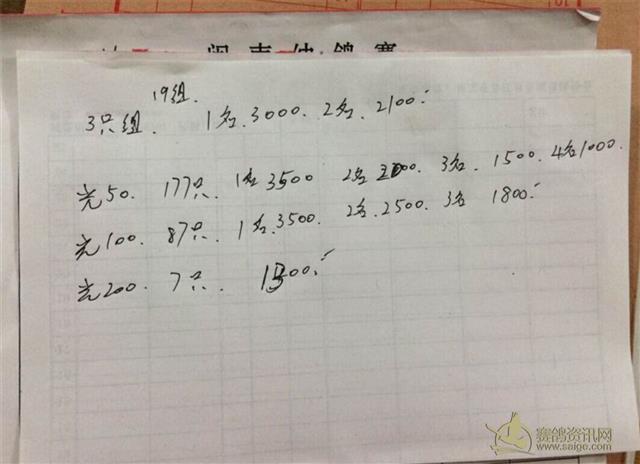 闽南仙鸽赛
19组.
3只组. 1名.3000. 2名. 2100.
光50. 177只. 1名3500 2名2000. 3名. 1500. 4名1000.
光100. 87只. 1名.3500. 2名.2500. 3名 1800.
光200. 7只. 1300.
赛鸽资讯网
www.saige.com